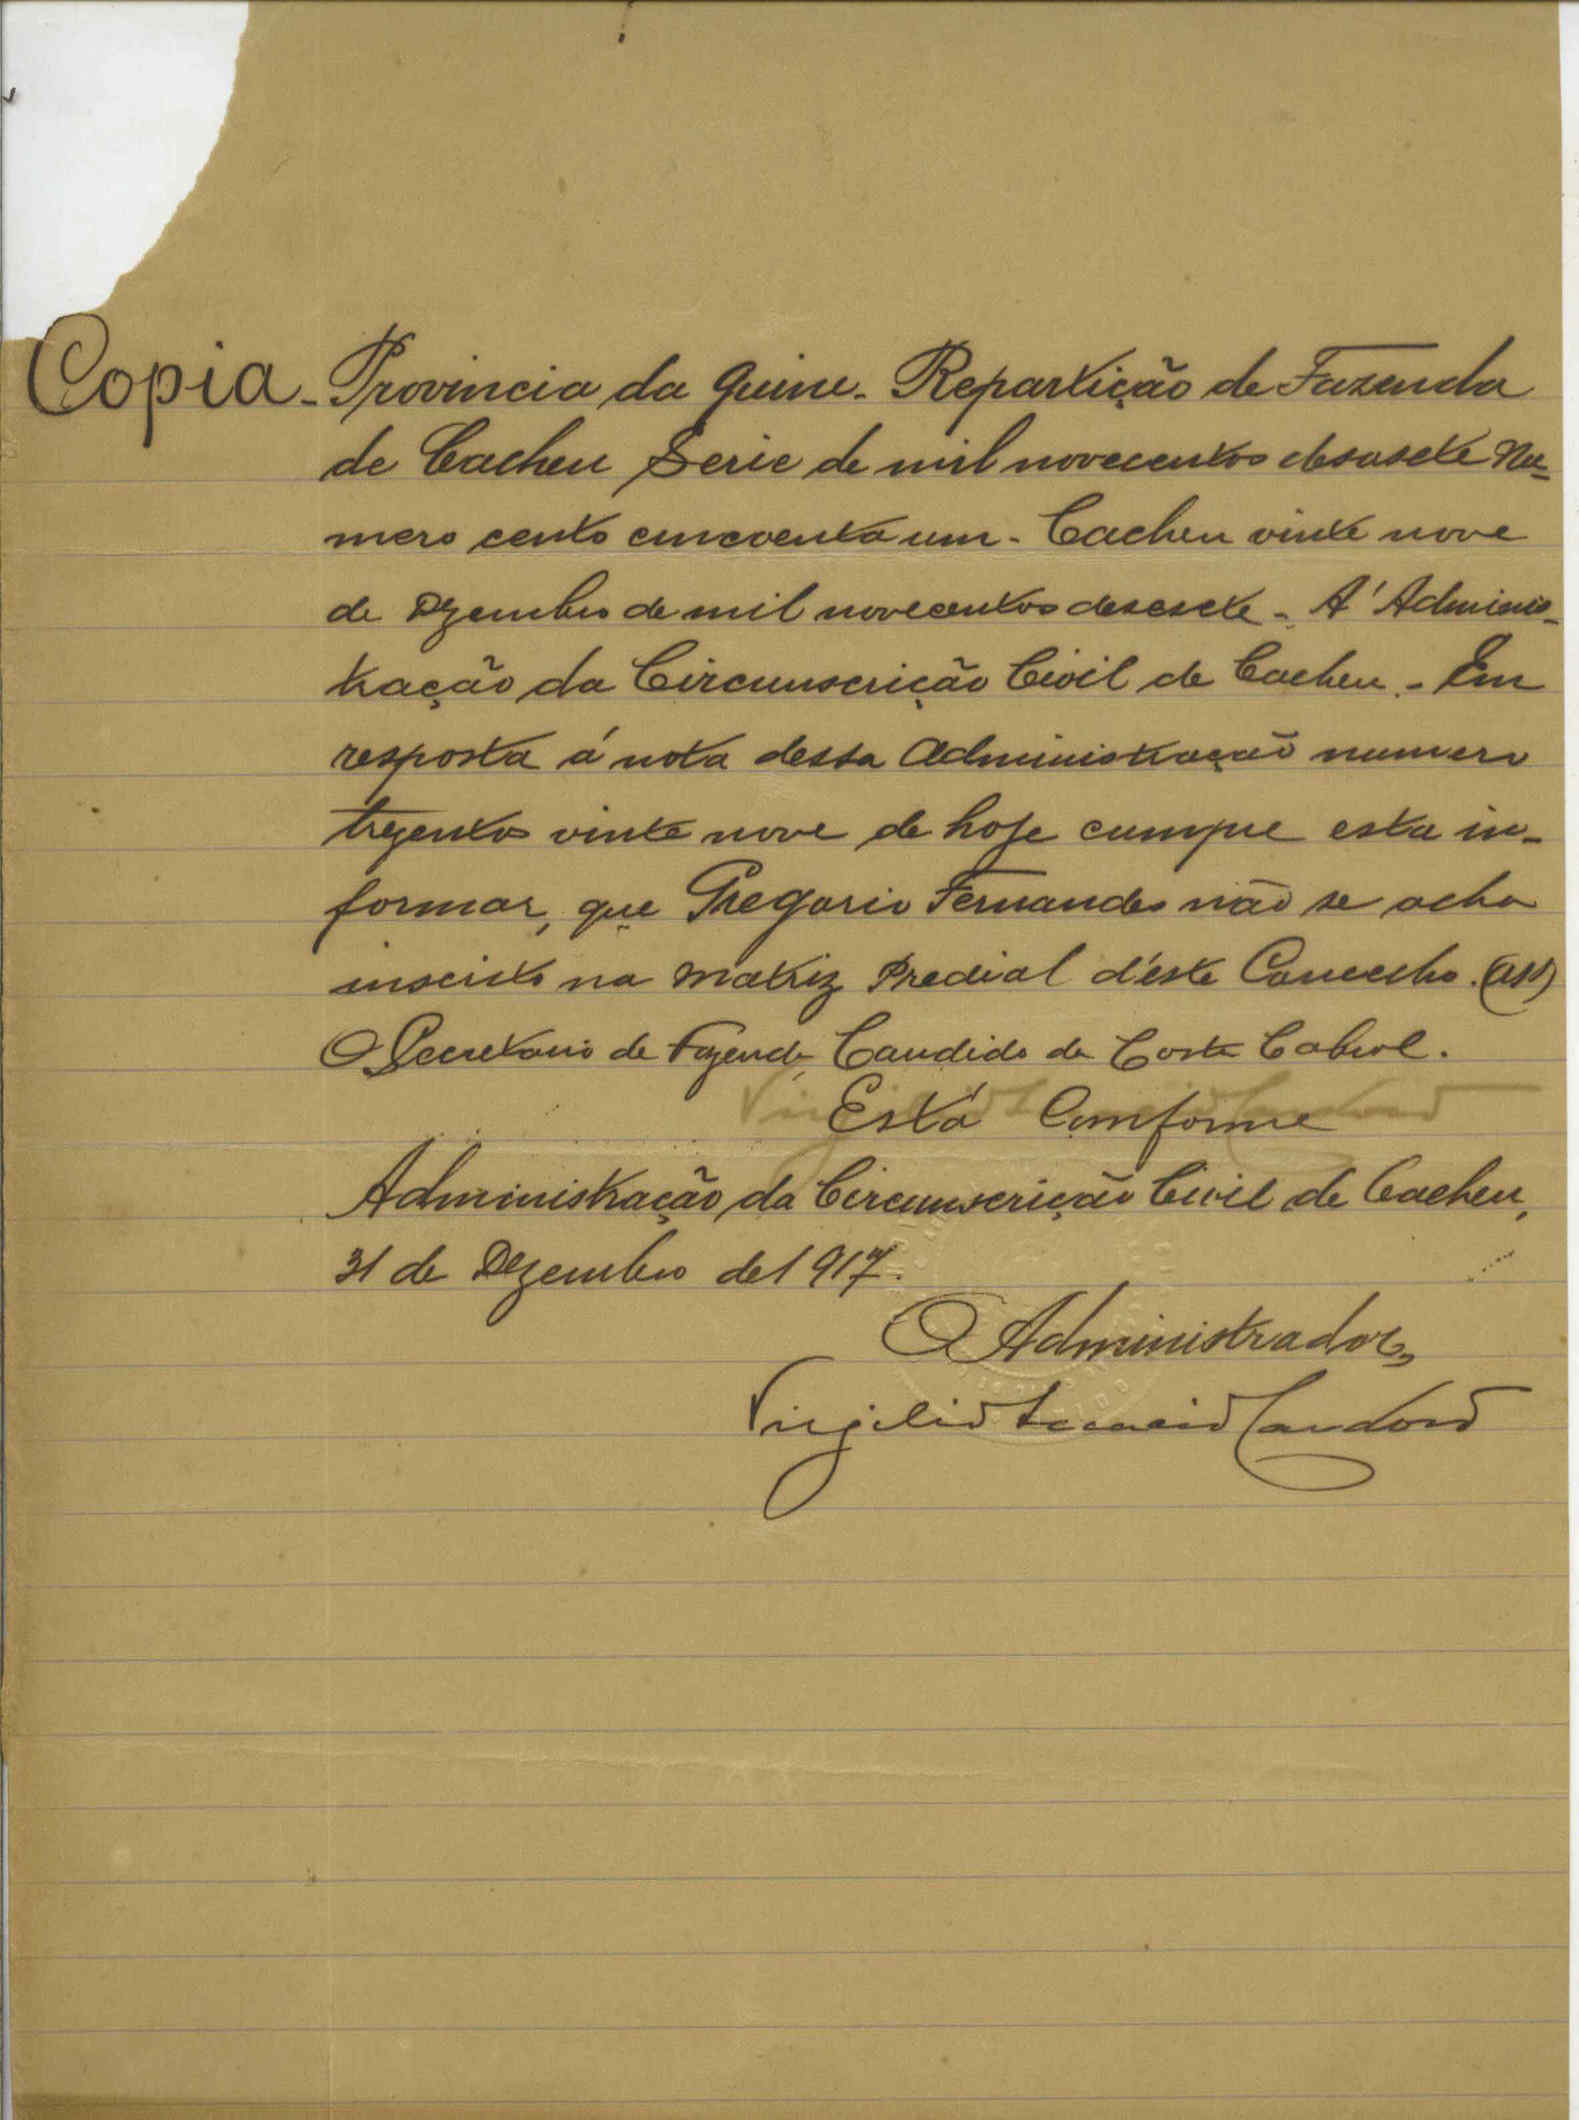 Copia - Provincia da Guine - Repartição de Fazenda
de Cacheu Serie de mil novecentos desasete Nu-
mero cento cincoenta um - Cacheu vinte nove
de Dezembro de mil novecentos desesete - A' Adminis-
tração da Circunscrição Civil de Cacheu - Em
resposta á nota dessa Administração numero
trezentos vinte nove de hoje cumpre esta in-
formar, que Gregorio Fernandes não se acha
inscrito na Matriz Predial d'este Concelho. (ass)
O Secretario de Fazenda, Candido da Costa Cabral.
Está Conforme
Administração da Circunscrição Civil de Cacheu,
31 de Dezembro de 1917.
O Administrador,
Virgilio